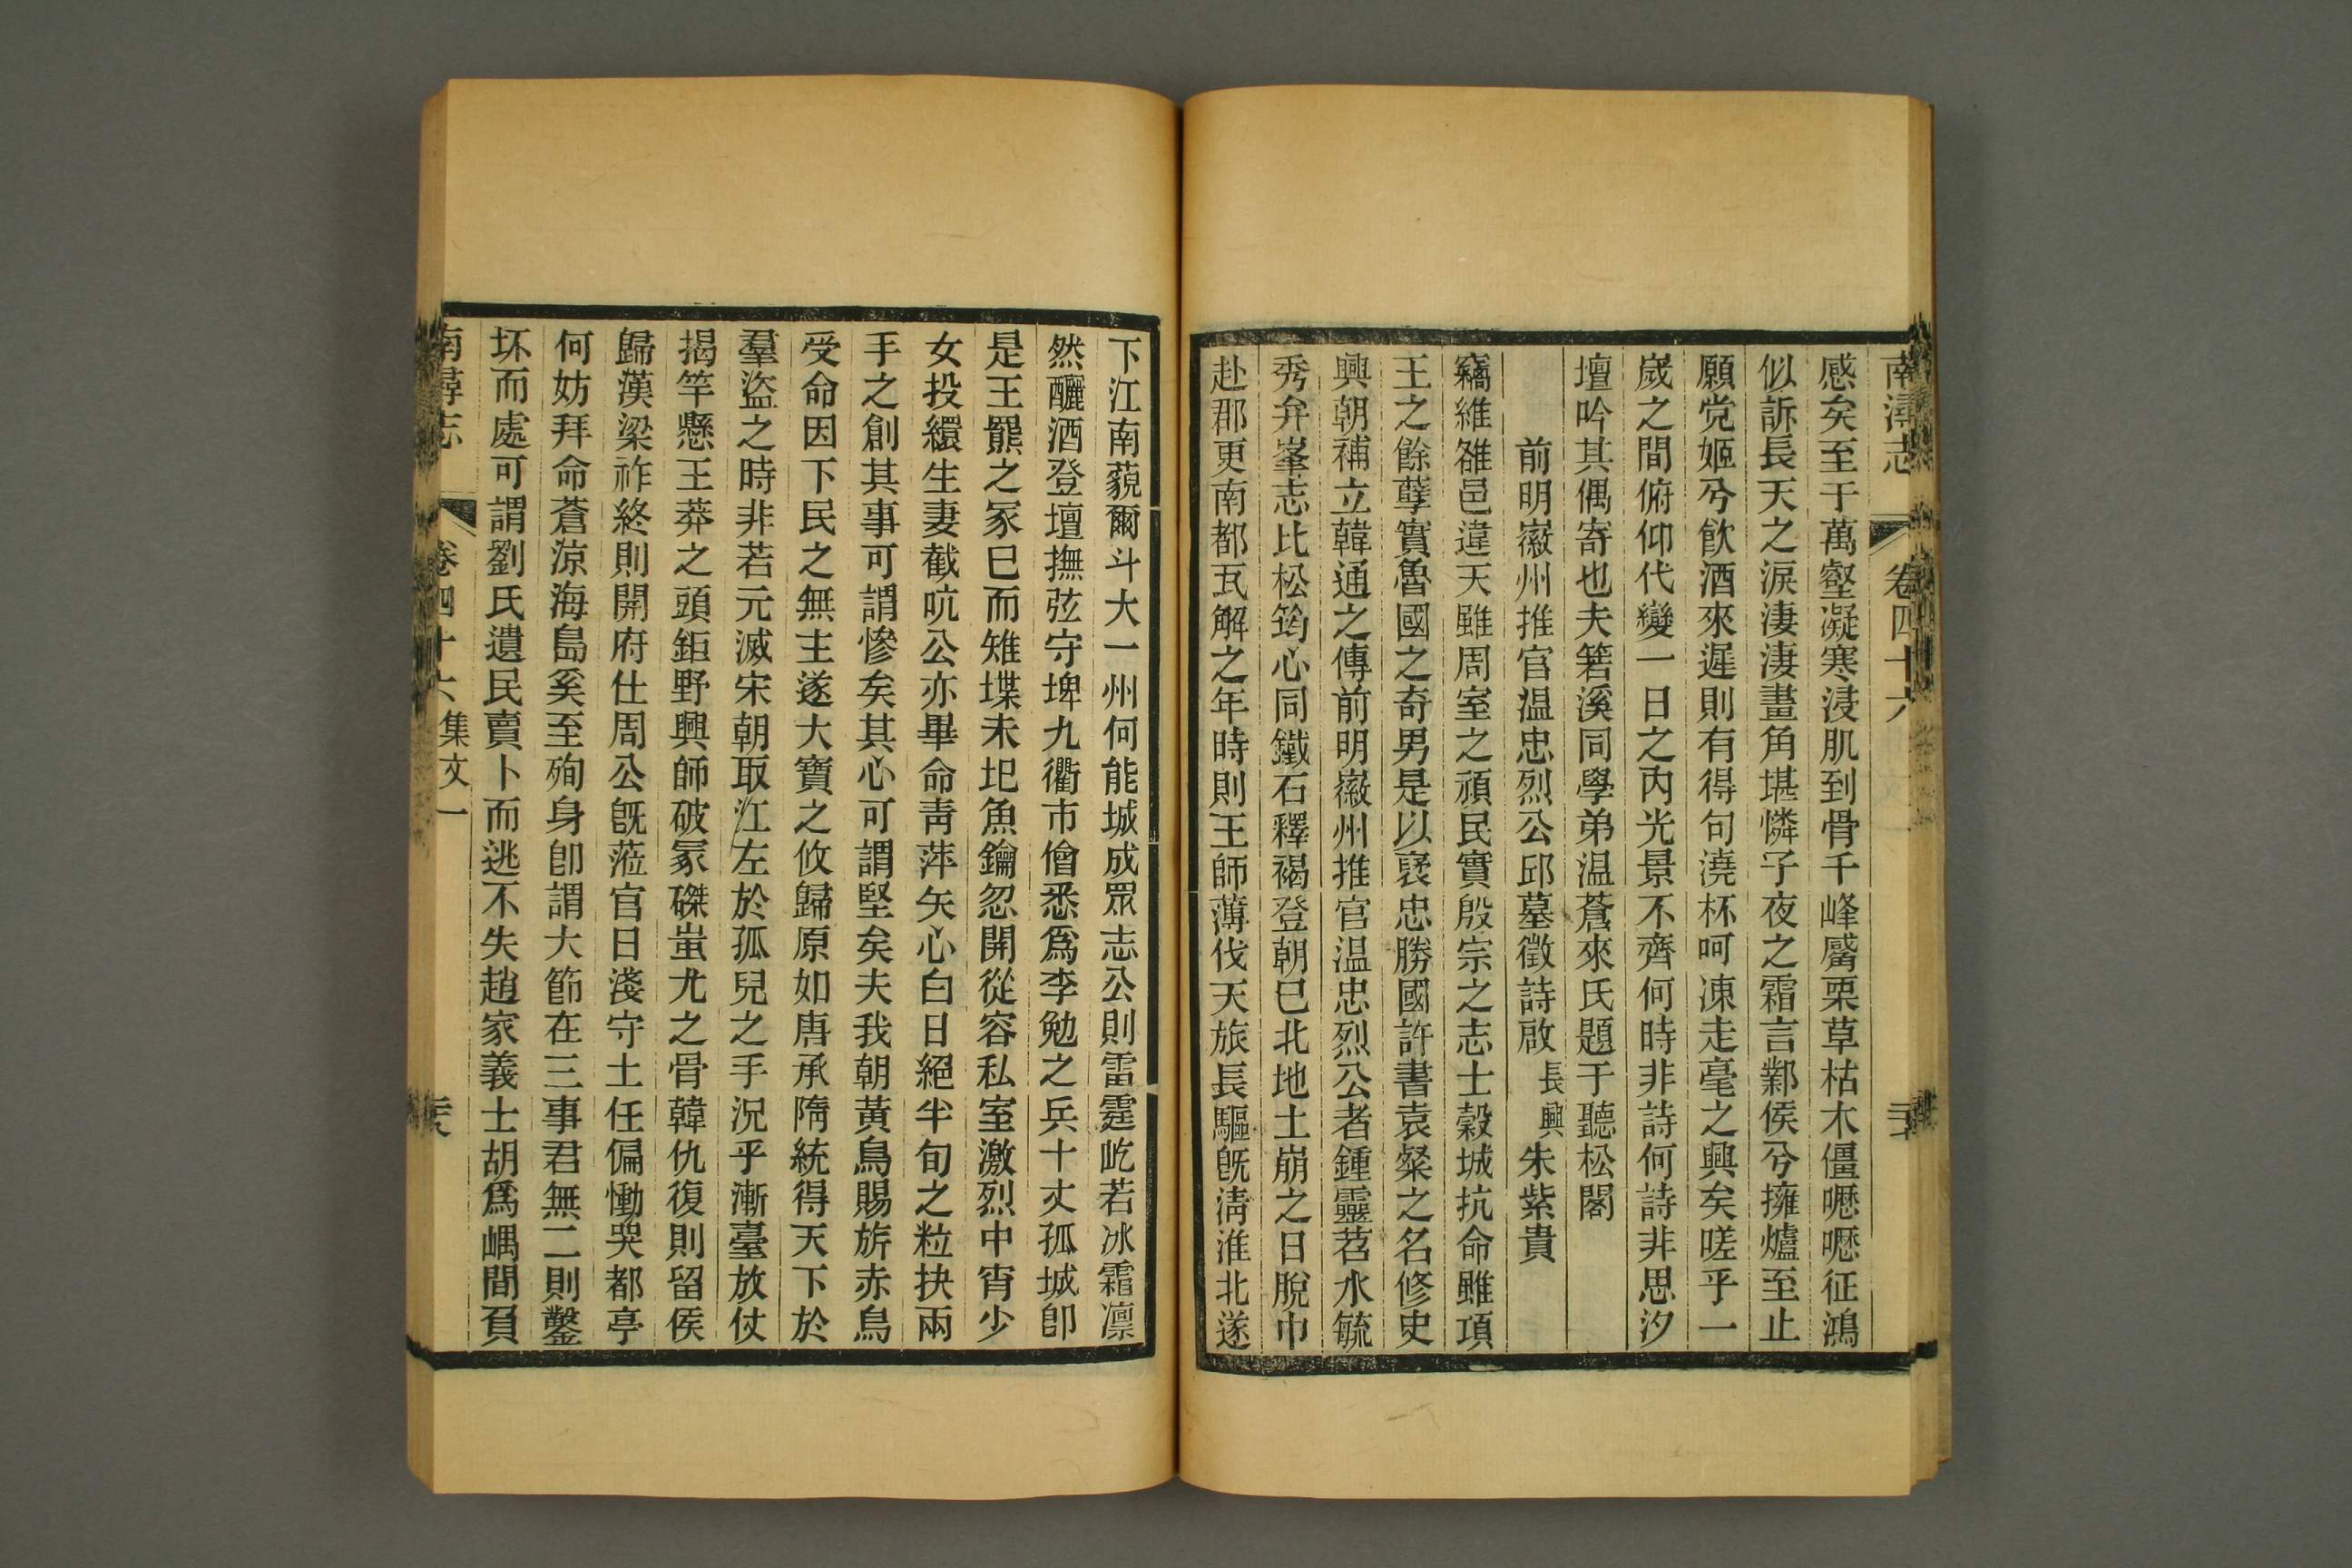 南潯志 卷四十六
感矣至于萬壑凝寒浸肌到骨千峰觱栗草枯木僵嚦嚦征鴻
似訴長天之淚淒淒畫角堪憐子夜之霜言鄴侯兮擁爐至止
願党姬兮飲酒來遲則有得句澆杯呵凍走毫之興矣嗟乎一
歲之間俯仰代變一日之內光景不齊何時非詩何詩非思汐
壇吟其偶寄也夫箬溪同學弟温蒼來氏題于聽松閣
前明徽州推官温忠烈公邱墓徵詩啟 長興 朱紫貴
竊維雒邑違天雖周室之頑民實殷宗之志士榖城抗命雖項
王之餘孽實魯國之奇男是以褒忠勝國許書袁粲之名修史
興朝補立韓通之傳前明徽州推官温忠烈公者鍾靈苕水毓
秀弁峯志比松筠心同鐵石釋褐登朝巳北地土崩之日脫巾
赴郡更南都瓦解之年時則王師薄伐天旅長驅旣淸淮北遂
下江南藐爾斗大一州何能城成眾志公則雷霆屹若冰霜凛
然釃酒登壇撫弦守埤九衢市儈悉爲李勉之兵十丈孤城卽
是王羆之冢巳而雉堞未圯魚鑰忽開從容私室激烈中宵少
女投繯生妻截吭公亦畢命靑萍矢心白日絕半旬之粒抉兩
手之創其事可謂慘矣其心可謂堅矣夫我朝黃鳥賜旂赤烏
受命因下民之無主遂大寶之攸歸原如唐承隋統得天下於
羣盜之時非若元滅宋朝取江左於孤兒之手況乎漸臺放仗
揭竿懸王莽之頭鉅野興師破冢磔蚩尤之骨韓仇復則留侯
歸漢梁祚終則開府仕周公旣蒞官日淺守土任偏慟哭都亭
何妨拜命蒼涼海島奚至殉身卽謂大節在三事君無二則鑿
坏而處可謂劉氏遺民賣卜而逃不失趙家義士胡爲嵎間負
南潯志 卷四十六 集文一